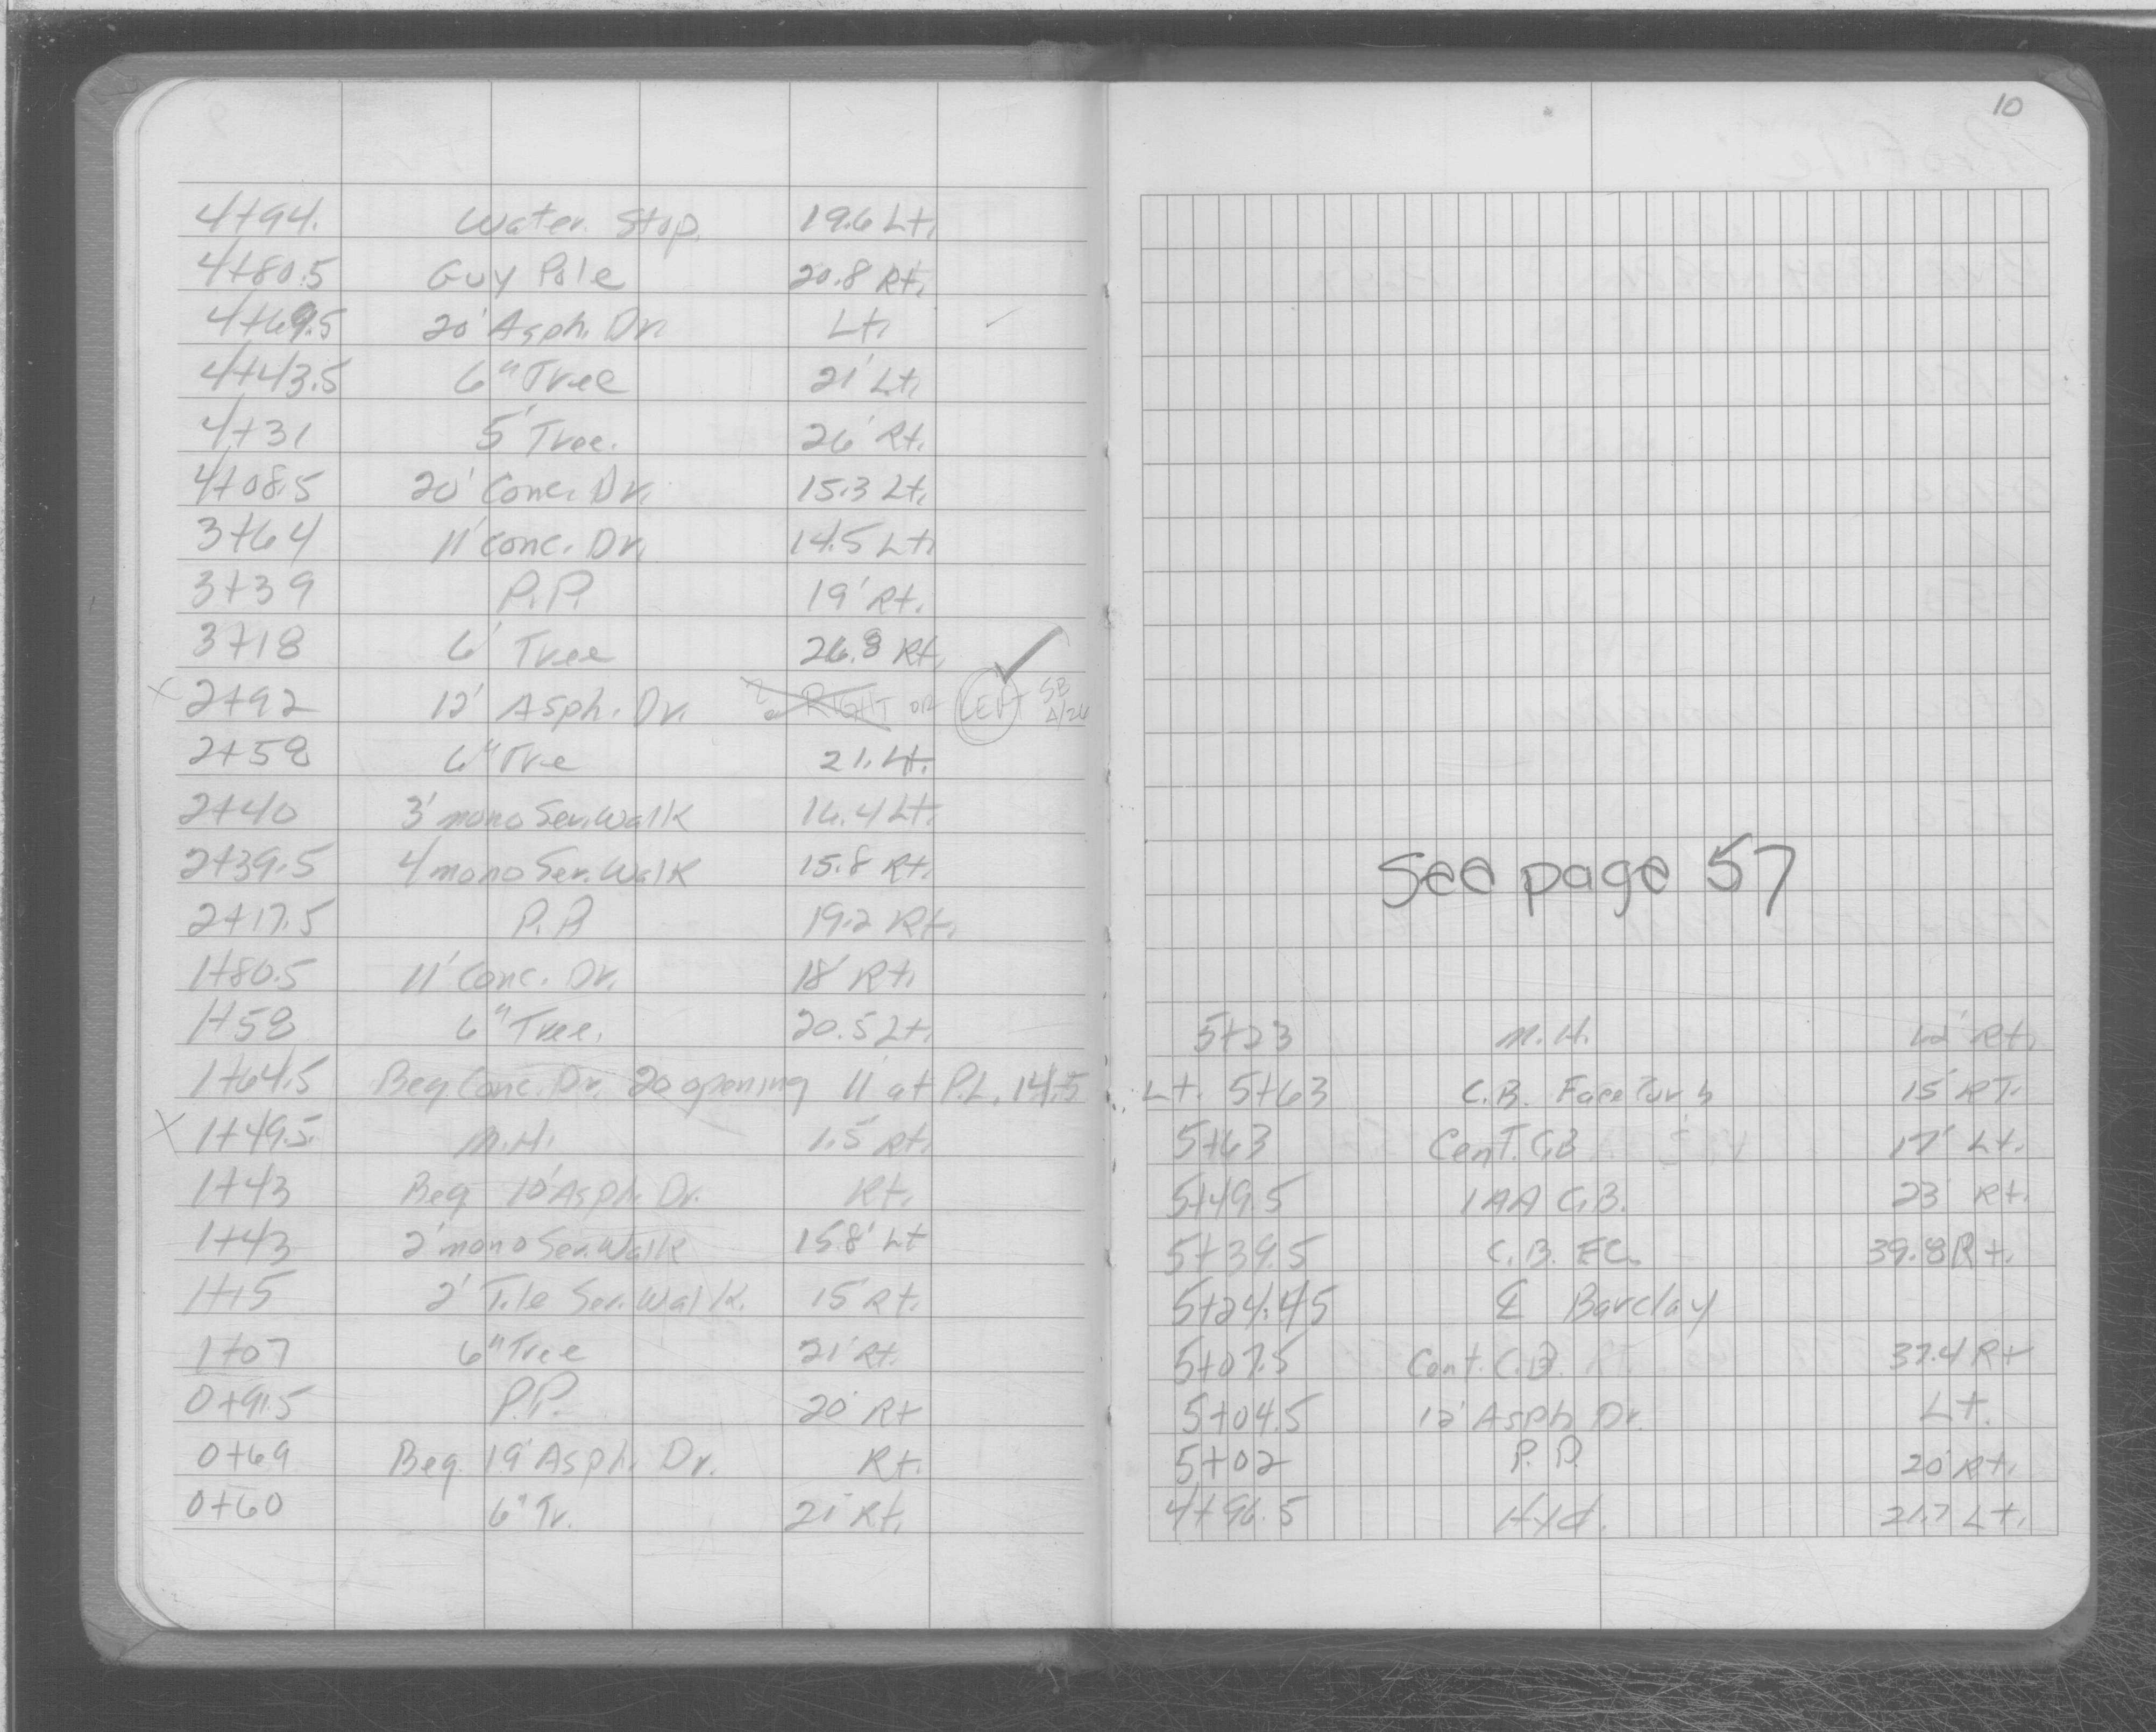 4+94. Water Stop. 19.6 Lt.
4+80.5 Guy Pole 20.8 Rt.
4+69.5 20' Asph. Dr. Lt.
4+43.5 6" Tree 21' Lt.
4+31 5' Tree. 26' Rt.
4+08.5 20' Conc. Dr. 15.3 Lt.
3+64 11' Conc. Dr. 14.5 Lt.
3+39 P.P. 19' Rt.
3+18 6' Tree 26.8 Rt.
X 2+92 12' Asph. Dr. ? RIGHT OR LEFT SB
2+58 6" Tre 21. Lt.
2+40 3' mono Ser. Walk 16.4 Lt.
2+39.5 4' mono Ser. Walk 15.8 Rt.
2+17.5 P.P. 19.2 Rt.
1+80.5 11' Conc. Dr. 18' Rt.
1+58 6" Tree. 20.5 Lt.
1+64.5 Beg. Conc. Dr. 20 opening 11' at P.L. 14.5 Lt.
X 1+49.5 M.H. 1.5' Rt.
1+43 Beg 10' Asph. Dr. Rt.
1+43 2' mono Ser. Walk 15.8' Lt
1+15 2' Tile Ser. Walk. 15' Rt.
1+07 6" Tree 21' Rt.
0+91.5 P.P. 20' Rt
0+69 Beg. 19' Asph. Dr. Rt.
0+60 6" Tr. 21' Rt.
10
See page 57
5+23 M.H. Rt.
5+63 C.B. Face Curb 15' RT.
5+63 Cent. C.B 17' Lt.
5+49.5 1AA C.B. 23' Rt.
5+39.5 C.B. EC. 39.8 Rt.
5+24.45 ℄ Barclay
5+07.5 Cent. C.B. 37.4 Rt
5+04.5 12' Asph Dr. Lt.
5+02 P.P. 20' Rt.
4+96.5 Hyd. 21.7 Lt.